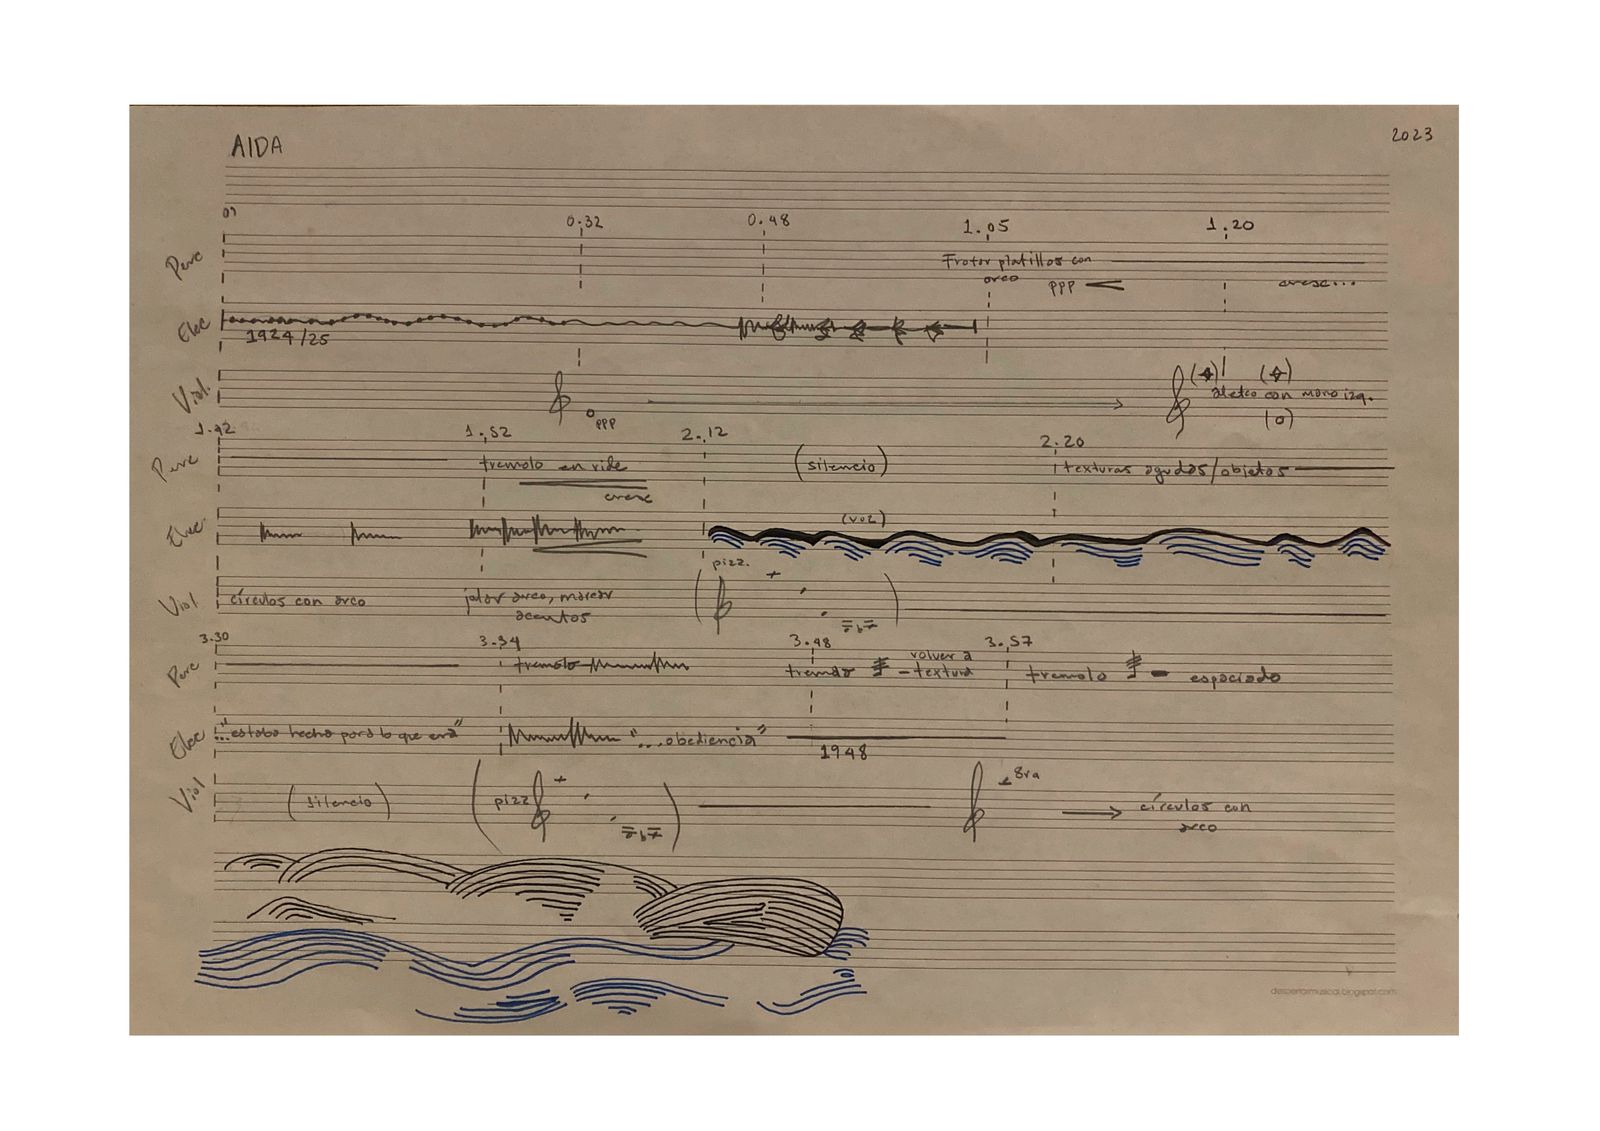 AIDA
2023
0"
0.32
0.48
1.05
1.20
Perc
Frotar platillos con
arco
ppp
cresc...
Elec
1924/25
Viol.
ppp
aleteo con mano izq.
1.42
1.52
2.12
2.20
Perc
tremolo en ride
(silencio)
texturas agudas/objetos
cresc
Elec
(voz)
pizz.
Viol
círculos con arco
jalar arco, marcar
acentos
3.30
3.34
3.48
3.57
Perc
tremolo
tremolo
volver a
- textura
tremolo
- espaciado
Elec
"...estaba hecho para lo que era"
"...obediencia"
1948
Viol
(silencio)
pizz
8va
círculos con
arco
despertarmusical.blogspot.com